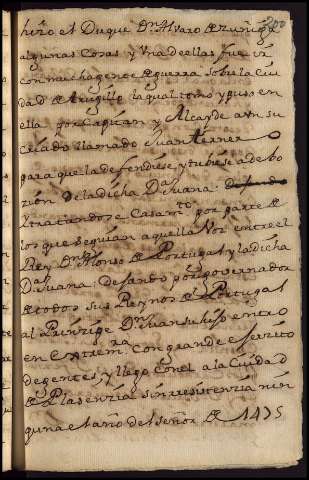 hizo el Duque Dn. Alvaro de Zuñiga
algunas Cosas y Vna de ellas fue ir
con mucha gente de guerra sobre la Ciu
dad de trugillo la qual tomo y puso en
ella por Capitan y Alcayde a vn su
Criado llamado Juan terner
para que la defendiese y tubiese a debo
zion de la dicha Da. Juana:
Y tratandose Casamto. por parte de
los que seguian aquella Voz entre el
Rey Dn. Alonso de Portugal y la dicha
Da. Juana: dejando por gouernador
de todos sus Reynos de Portugal
al Prinzipe Dn. Juan su hijo entro
en Extremra. Con grande esercito
de gentes, y llego Con el a la Ciudad
de Plasenzia sin resistenzia nin
guna el año del señor de 1475